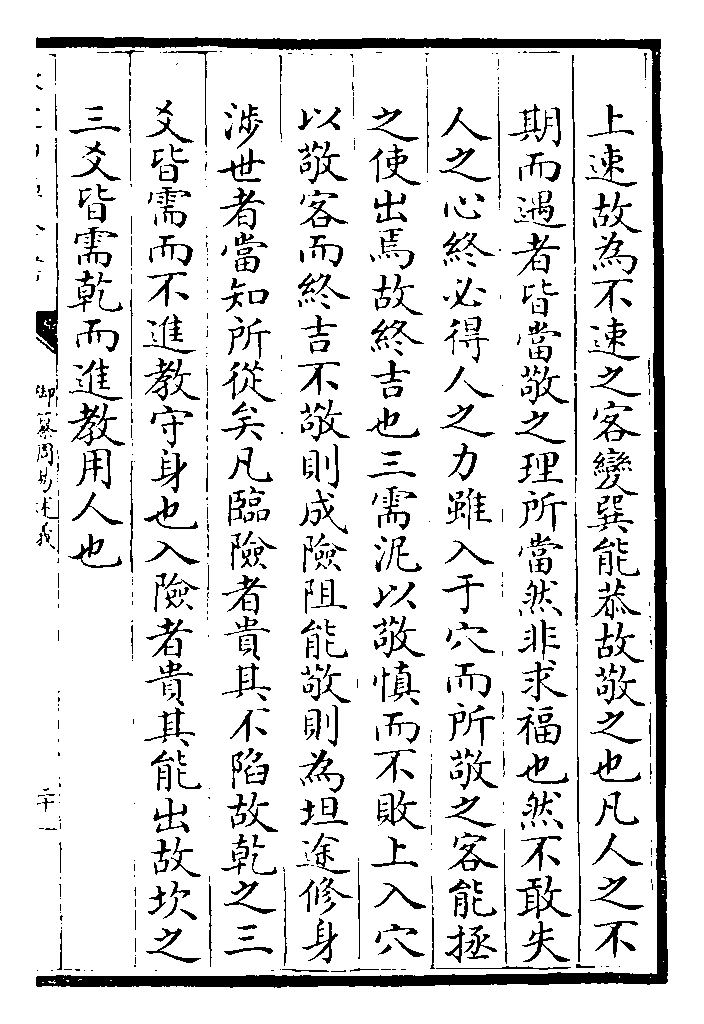 上速故為不速之客變巽能恭故敬之也凡人之不
期而遇者皆當敬之理所當然非求福也然不敢失
人之心終必得人之力雖入于穴而所敬之客能拯
之使出焉故終吉也三需泥以敬慎而不敗上入穴
以敬客而終吉不敬則成險阻能敬則為坦途修身
涉世者當知所從矣凡臨險者貴其不陷故乾之三
爻皆需而不進教守身也入險者貴其能出故坎之
三爻皆需乾而進教用人也
御纂周易述義
二十一